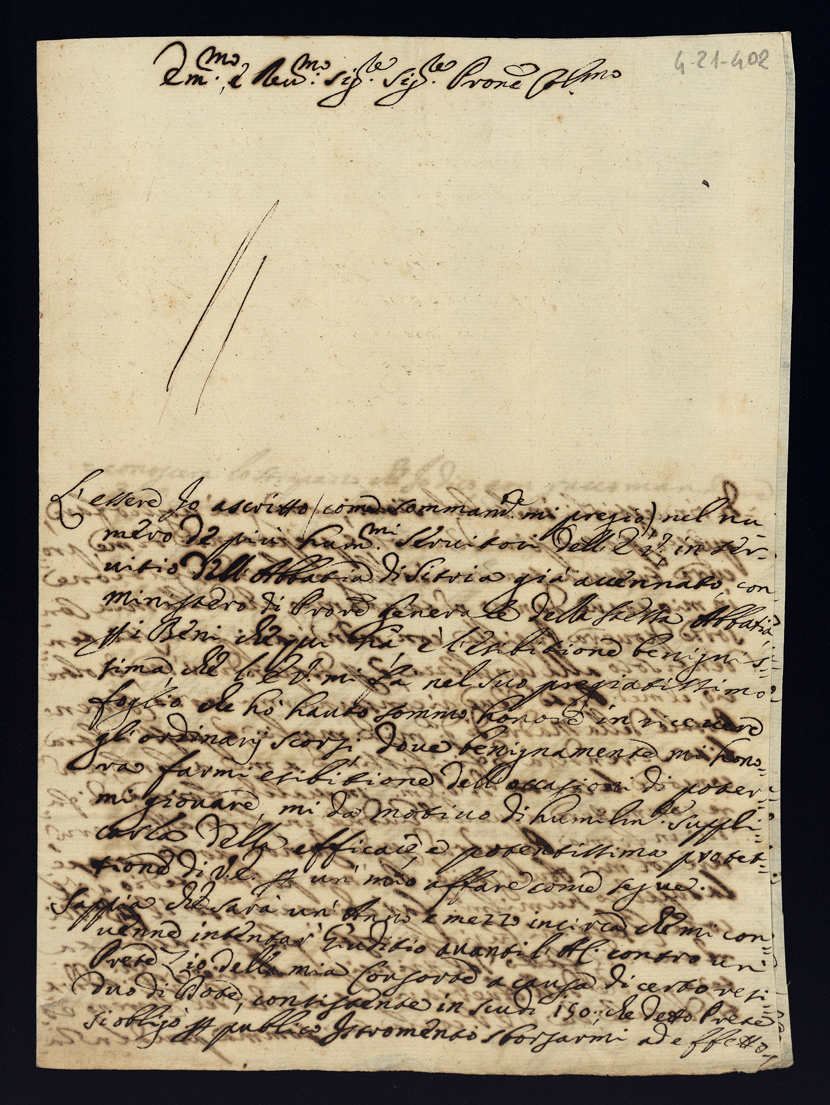 4-21-402
Em.mo e Reu.mo Sig.re Sig.re Prone Col.mo
L'essere Jo ascritto (come sommam.te mi pregio) nel nu-
mero de più hum.mi seruitori dell'E.V. in ser-
uitio dell'Abbatia di Sitria già auennato, con
ministero di Prore generale della stessa Abbatia
p i Beni che qui hà, e l'esibitione benignis-
sima, che l'E.V. mi fà nel suo pregiatissimo
foglio che hò hauto sommo honore in riceuere
gli ordinarij scorsi doue benignamente mi hono-
ra farmi esibitione dell'occasioni di poter-
mi giouare, mi dà motiuo di humilm.te suppli
carla della efficace, e potentissima protet-
tione di V.E. p un' mio affare come segue.
Sappia che sarà un' Anno e mezzo incirca che mi con
uenne intentar' Giuditio auanti contro un
Prete Zio della mia Consorte a causa di certo resi
duo di Dote, consistente in scudi 150: che detto Prete
si obligò p publico Jstromento sborsarmi ad effetto